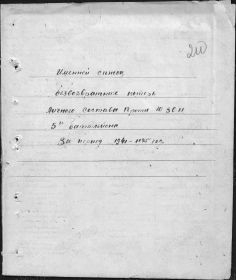 210
Именной список
безвозвратных потерь
Личного Состава
5го батальона
За период 1941-1945 год